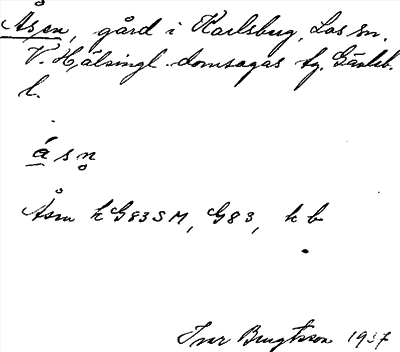 Åsen, gård i Karlsberg, Los sn.
V. Hälsingl. domsagas tg. Gävleb.
l.
å s n̥
Åsn k G83SM, G83, k b
Ivar Bengtsson 1937